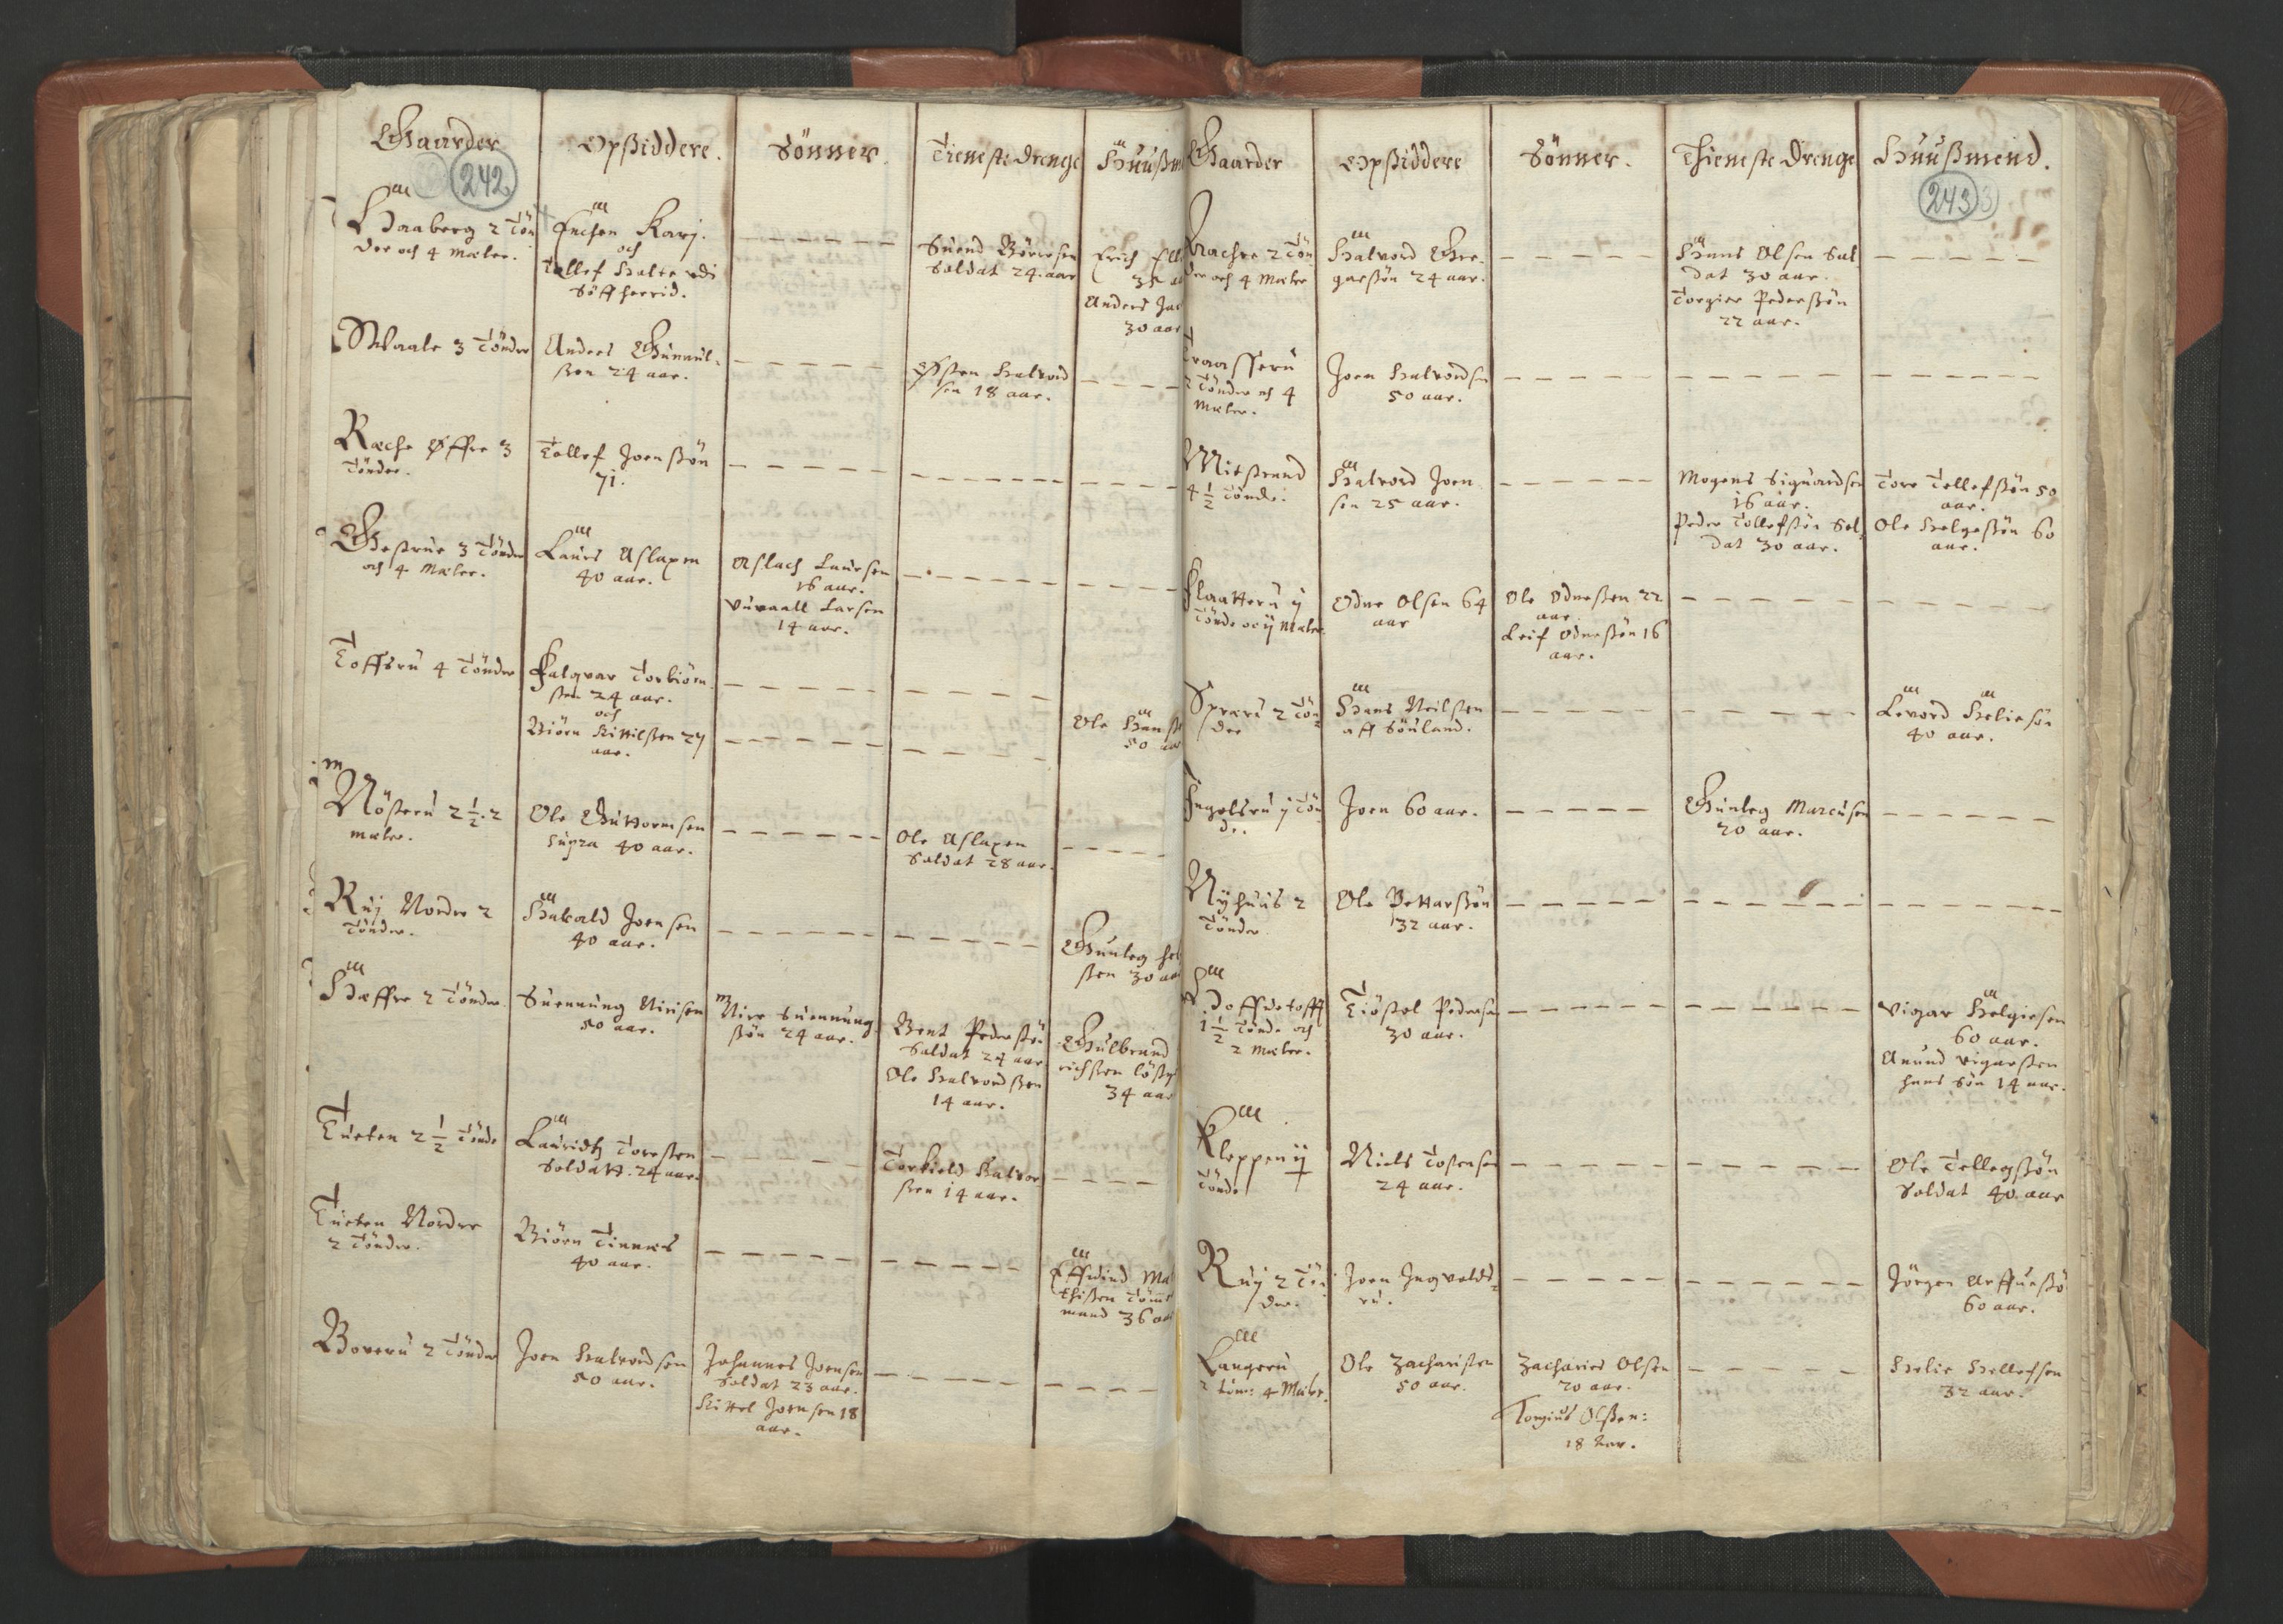 Gaarder
Opsiddere.
Sönner.
Tieneste drenge
Huusm
242
Haaberg 2 Tön
der och 4 Mæler.
Enchen Karj.
och
Tollef Halte udi
Söffherrid.
Suend Börresen
Soldat 24. aar
Erich Ell
35 a
Anders Jac
30 aar
Waale 3 Tönder
Anders Gunnul-
ßen 24 aar.
Østen Halvord
sen 18 aar.
Rache Øffre 3
Tönder.
Tollef Joenßön
71.
Gestrue 3 Tönder
och 4 Mæler.
Laurs Aslaxen
40 aar.
Aslach Laursen
16 aar.
Gunnall Larsen
14 aar.
Toffsru 4 Tönder
Falqvar Torbiörn-
ßen 24 aar.
och
Biörn Kittilßen 27
aar.
Ole Hanß
50 aar
Nösteru 2 1/2. 2
mæler.
Ole Guttormsen
supra 40 aar.
Ole Aslaxen
Soldat 28 aar.
Ruj Nordre 2
Tönder.
Hakald Joensen
40 aar.
Gunleg hel
ßen 30 aar
Hæffre 2 Tönder.
Suennung Nirisen
50 aar.
Nire Suennung-
ßön 24 aar.
Bent Pederßö-
Soldat 24 aar
Ole Halvordßen
14 aar.
Gulbrand
richßen lößg
34 aar
Tueten 2 1/2 Tönde
Lauridtz Toreßen
Soldatt. 24 aar.
Torkield Halvor
ßen 14 aar.
Tueten Nordre
2 Tönder.
Biörn Tinnæs
40 aar.
Effuind Ma
thißen Tömr
mand 36 aar
Boveru 2 Tönder
Joen Halvordsen
50 aar.
Johannes Joensen
Soldat 23 aar.
Kittel Joensen 18
aar.
Gaarder
Opsiddere
Sönner.
Thieneste drenge
Huußmend.
243
Rachre 2 Tön
der och 4 Mæler
Halvord Gre-
garßön 24 aar.
Hans Olsen Sol
dat 30 aar.
Torgier Pederßön
22 aar.
Traasseru
2 Tönder och 4
Mæler.
Joen Halvordsen
50 aar.
Mitstrand
4 1/2 Tönde.
Halvord Joen
sen 25 aar.
Mogens Siguardsen
16 aar.
Peder Tollefßön Sol-
dat 30 aar.
Tore Tollefßön 50
aar.
Ole Helgeßön 60
aar.
Flaatteru ij
Tönde oc ij Mæler
Odne Olsen 64
aar
Ole Odneßen 22
aar
Leif Odneßön 16
aar.
Spraru 2 Tön
der
Hans Neilßen
aff Söuland.
Levord Heliesön
40 aar.
Ingolsru j Tön
de.
Joen 60 aar.
Gunleg Marcusen
20 aar.
Nyhuus 2
Tönder
Ole Pettarßön
32 aar.
Hoffdetofft
1 1/2 Tönde och
2 Mæler.
Tiöstol Pedersen
30 aar.
Vigar Helgiesen
60 aar.
Anund Vigarßen
hans Sön 14 aar.
Kleppen ij
Tönde
Niels Tostensen
24 aar.
Ole Tollegßön
Soldat 40 aar
Ruj 2 Tön
der.
Joen Ingvalds-
ru.
Jörgen Arffueßö
60 aar.
Langeru
2 tön: 4 Mæler.
Ole Zacharißen
50 aar.
Zacharies Olsen
20 aar.
Torgius Olßen:
18 Aar.
Helie Hellefsen
32 aar.